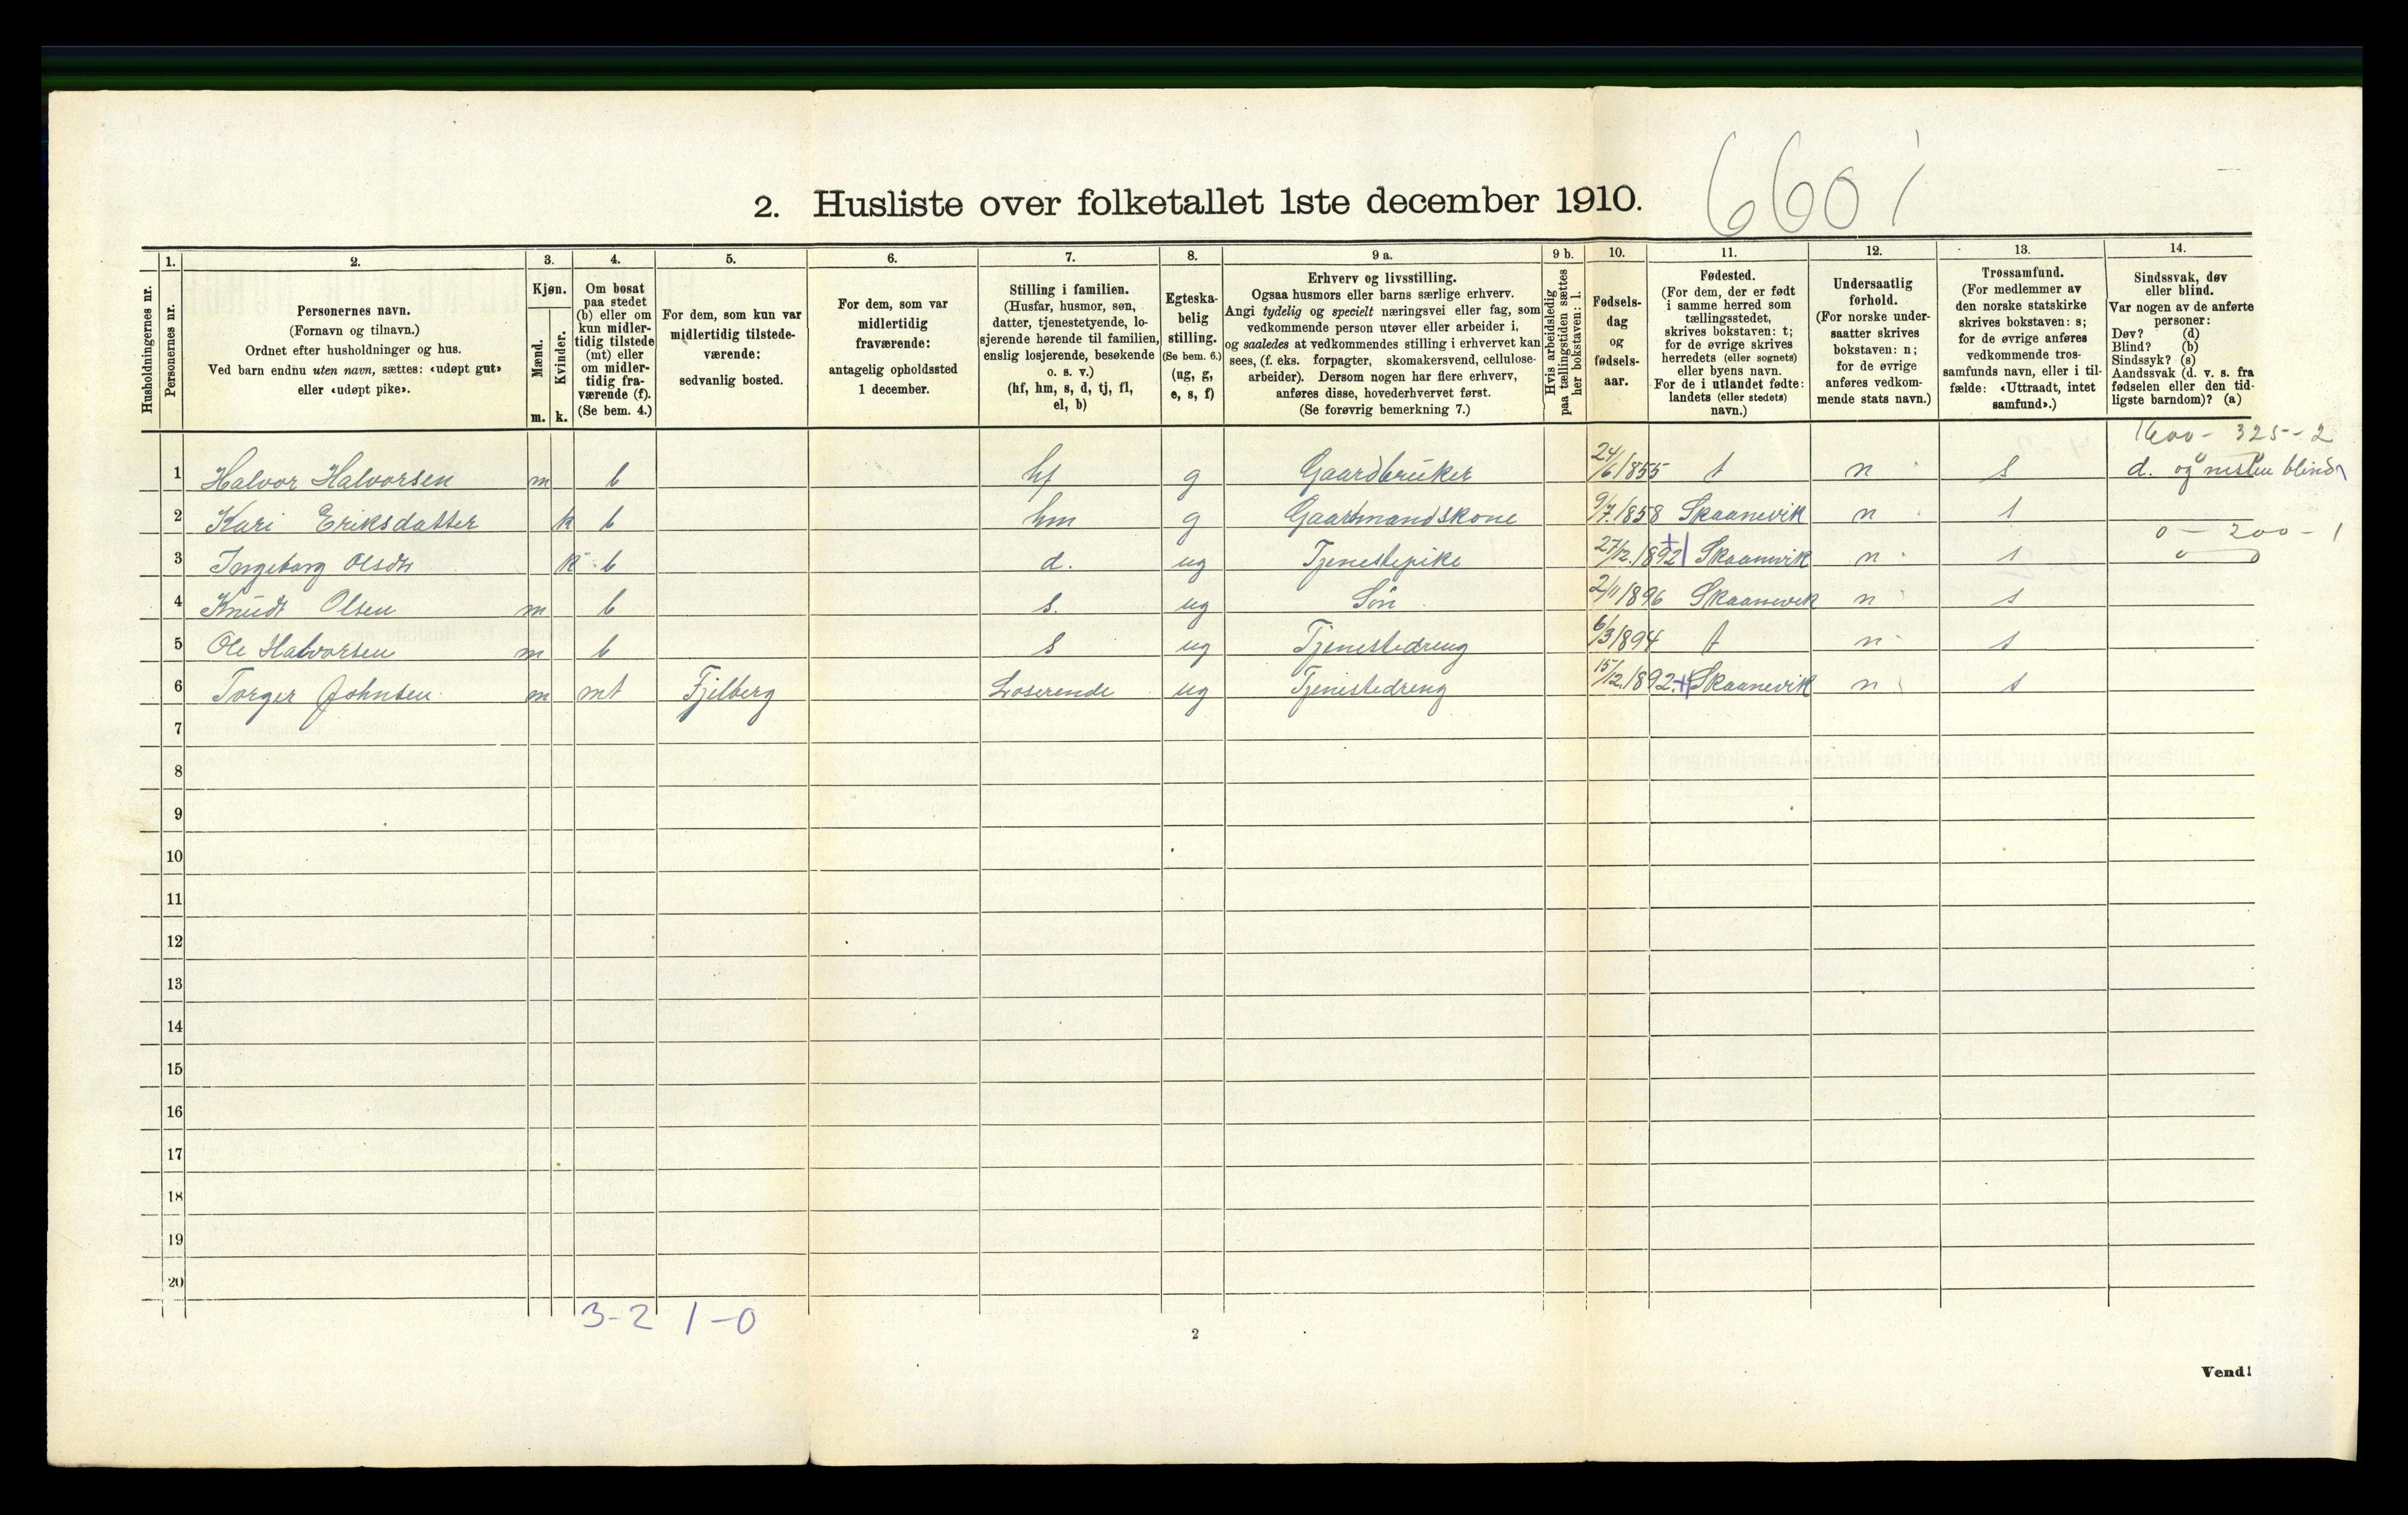 6601
2. Husliste over folketallet 1ste december 1910.
Husholdningernes nr.
1.
Personernes nr.
2.
Personernes navn.
(Fornavn og tilnavn.)
Ordnet efter husholdninger og hus.
Ved barn endnu uten navn, sættes: «udøpt gut»
eller «udøpt pike».
3.
Kjøn.
Mænd.
m.
Kvinder.
k.
4.
Om bosat
paa stedet
(b) eller om
kun midler-
tidig tilstede
(mt) eller
om midler-
tidig fra-
værende (f).
(Se bem. 4.)
5.
For dem, som kun var
midlertidig tilstede-
værende:
sedvanlig bosted.
6.
For dem, som var
midlertidig
fraværende:
antagelig opholdssted
1 december.
7.
Stilling i familien.
(Husfar, husmor, søn,
datter, tjenestetyende, lo-
sjerende hørende til familien,
enslig losjerende, besøkende
o. s. v.)
(hf, hm, s, d, tj, fl,
el, b)
8.
Egteska-
belig
stilling.
(Se bem. 6.)
(ug, g,
e, s, f)
9 a.
Erhverv og livsstilling.
Ogsaa husmors eller barns særlige erhverv.
Angi tydelig og specielt næringsvei eller fag, som
vedkommende person utøver eller arbeider i,
og saaledes at vedkommendes stilling i erhvervet kan
sees, (f. eks. forpagter, skomakersvend, cellulose-
arbeider). Dersom nogen har flere erhverv,
anføres disse, hovederhvervet først.
(Se forøvrig bemerkning 7.)
9 b.
Hvis arbeidsledig
paa tællingstiden sættes
her bokstaven: l.
10.
Fødsels-
dag
og
fødsels-
aar.
11.
Fødested.
(For dem, der er født
i samme herred som
tællingsstedet,
skrives bokstaven: t;
for de øvrige skrives
herredets (eller sognets)
eller byens navn.
For de i utlandet fødte:
landets (eller stedets)
navn.)
12.
Undersaatlig
forhold.
(For norske under-
saatter skrives
bokstaven: n;
for de øvrige
anføres vedkom-
mende stats navn.)
13.
Trossamfund.
(For medlemmer av
den norske statskirke
skrives bokstaven: s;
for de øvrige anføres
vedkommende tros-
samfunds navn, eller i til-
fælde: «Uttraadt, intet
samfund».)
14.
Sindssvak, døv
eller blind.
Var nogen av de anførte
personer:
Døv? (d)
Blind? (b)
Sindssyk? (s)
Aandssvak (d. v. s. fra
fødselen eller den tid-
ligste barndom)? (a)
1600 - 325 - 2
1 Halvor Halvorsen m b hf g Gaardbruker 24/6 1855 t n s d. og nesten blind
2 Kari Eriksdatter k b hm g Gaardmandskone 9/7. 1858 Skaanevik n s
0 - 200 - 1
3 Ingeborg Olsdtr k b d. ug Tjenestepike 27/12. 1892 Skaanevik n s
4 Knudt Olsen m b s. ug Søn 2/11 1896 Skaanevik n s
5 Ole Halvorsen m b s ug Tjenestedreng 6/3 1894 t n s
6 Torger Johnsen m mt Fjelberg Loserende ug Tjenestedreng 15/12. 1892. Skaanevik n s
7
8
9
10
11
12
13
14
15
16
17
18
19
20
3-2 1-0
2
Vend!